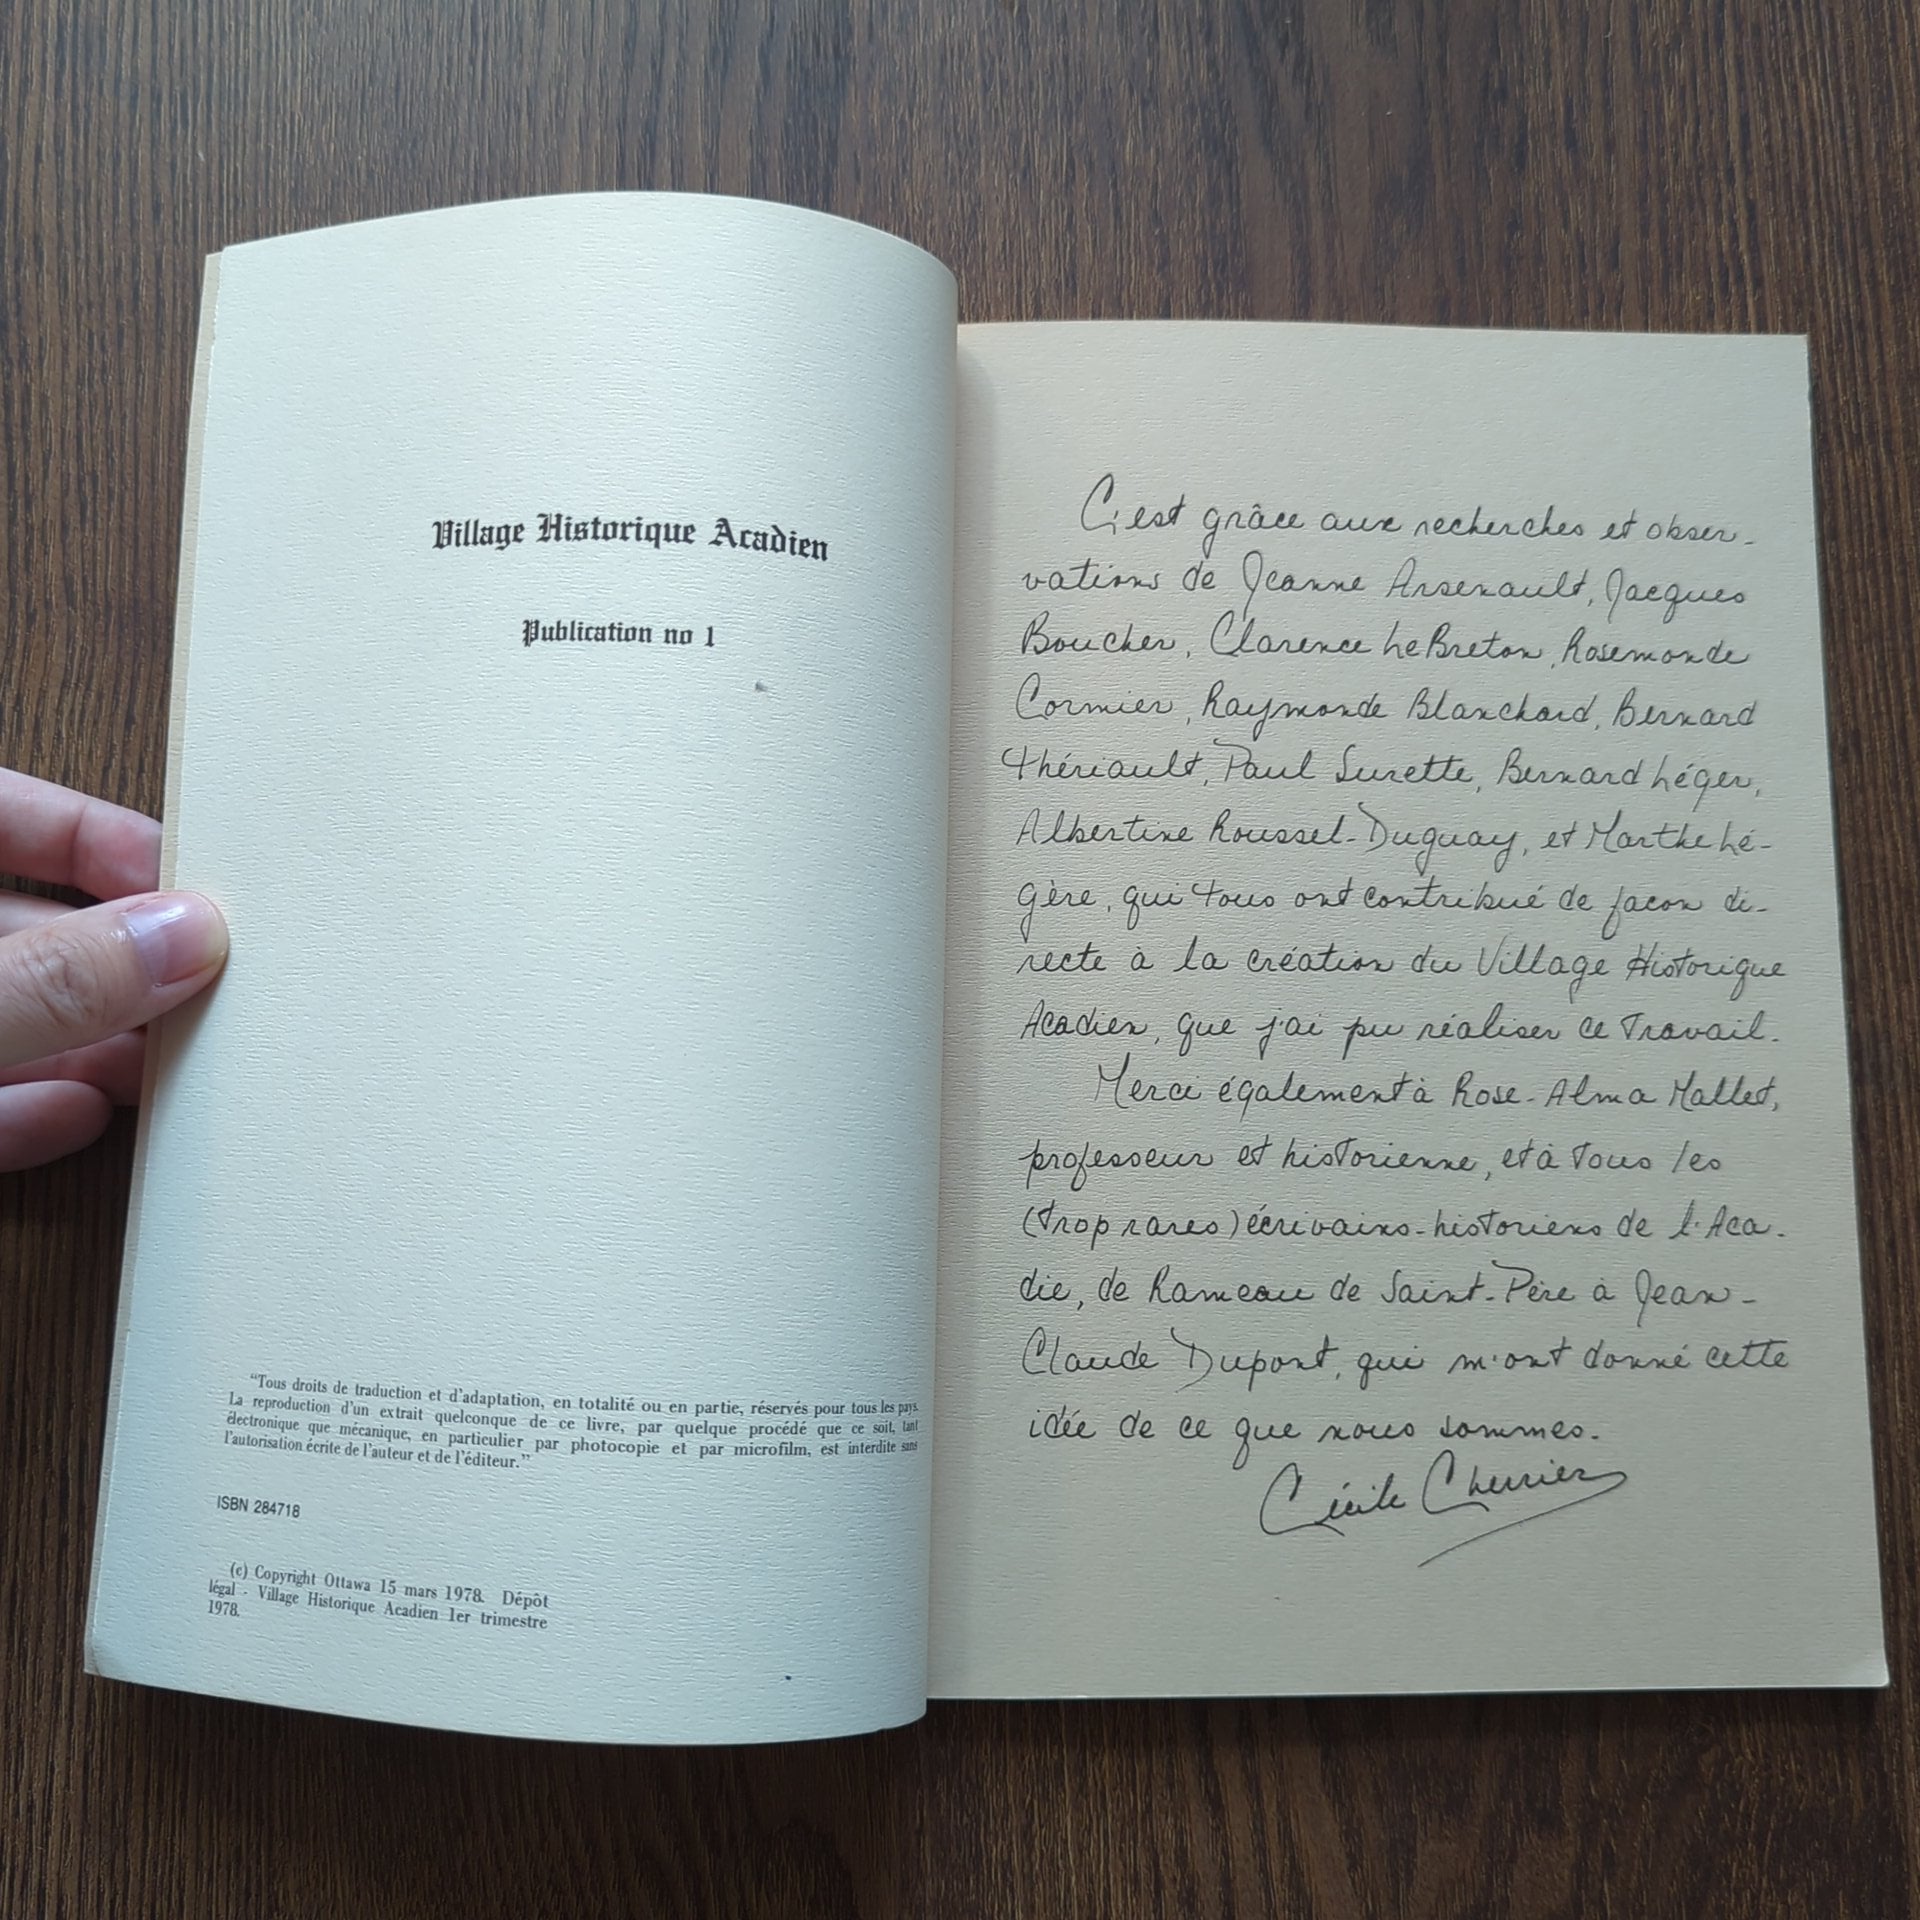 Village Historique Acadien
Publication no 1
“Tous droits de traduction et d'adaptation, en totalité ou en partie, réservés pour tous les pays.
La reproduction d'un extrait quelconque de ce livre, par quelque procédé que ce soit, tant
électronique que mécanique, en particulier par photocopie et par microfilm, est interdite sans
l'autorisation écrite de l'auteur et de l'éditeur.”
ISBN 284718
(c) Copyright Ottawa 15 mars 1978. Dépôt
légal - Village Historique Acadien 1er trimestre
1978.
C'est grâce aux recherches et obser-
vations de Jeanne Arsenault, Jacques
Boucher, Clarence LeBreton, Rosemonde
Cormier, Raymonde Blanchard, Bernard
Thériault, Paul Surette, Bernard Léger,
Albertine Roussel-Duguay, et Marthe Lé-
gère, qui tous ont contribué de facon di-
recte à la création du Village Historique
Acadien, que j'ai pu réaliser ce travail.
Merci également à Rose-Alma Mallet,
professeur et historienne, et à tous les
(trop rares) écrivains-historiens de l'Aca-
die, de Rameau de Saint-Père à Jean-
Claude Dupont, qui m'ont donné cette
idée de ce que nous sommes.
Cécile Cherrier